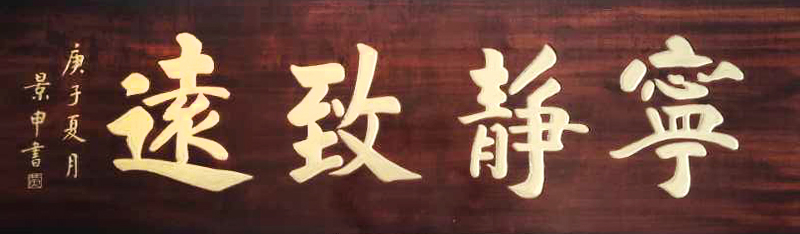 寧靜致遠
庚子夏月
景申書